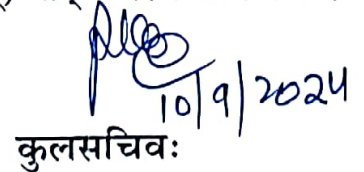 10/9/2024
कुलसचिवः